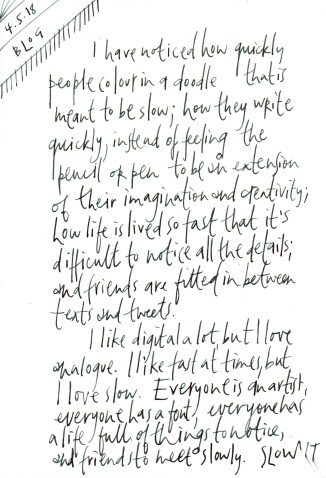 4.5.18
BLOG
I have noticed how quickly
people colour in a doodle that is
meant to be slow; how they write
quickly, instead of feeling the
pencil or pen to be an extension
of their imagination and creativity;
how life is lived so fast that it's
difficult to notice all the details;
and friends are fitted in between
texts and tweets.
I like digital a lot, but I love
analogue. I like fast at times, but
I love slow. Everyone is an artist,
everyone has a font, everyone has
a life full of things to notice,
and friends to meet slowly. SLOW IT